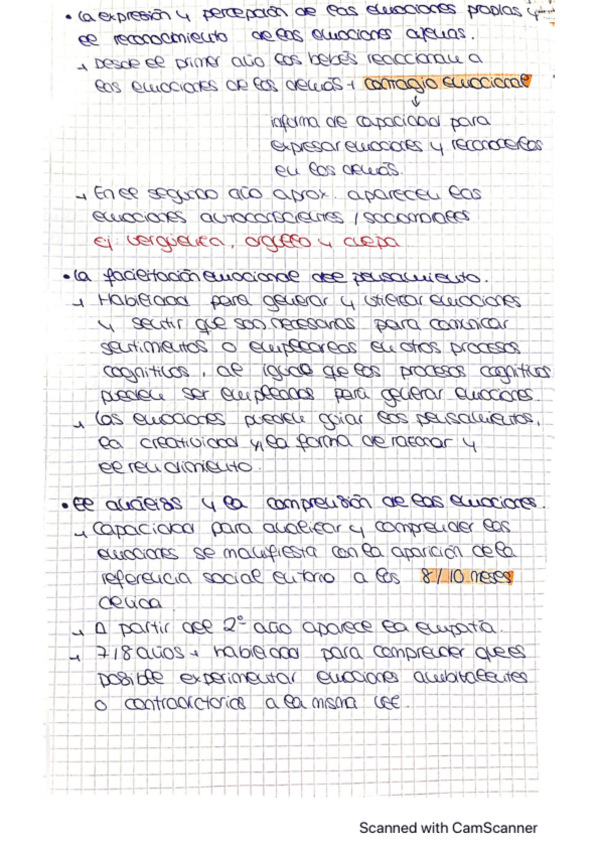 • La expresión y percepción de las emociones propias y
el reconocimiento de las emociones ajenas.
→ Desde el primer año los bebés reaccionan a
las emociones de los demás → contagio emocional
↓
informa de capacidad para
expresar emociones y reconocerlas
en los demás.
→ En el segundo año aprox. aparecen las
emociones autoconscientes / sociomorales
Ej vergüenza, orgullo y culpa
• La facilitación emocional del pensamiento.
→ Habilidad para generar y utilizar emociones
y sentir que son necesarios para comunicar
sentimientos o emplearlas en otros procesos
cognitivos, al igual que los procesos cognitivos
pueden ser empleados para generar emociones.
→ Las emociones pueden guiar los pensamientos,
la creatividad y la forma de razonar y
el rendimiento.
• El análisis y la comprensión de las emociones.
→ Capacidad para analizar y comprender las
emociones se manifiesta con la aparición de la
referencia social entorno a los 8/10 meses
de vida.
→ A partir del 2º año aparece la empatía.
→ 7/8 años → habilidad para comprender que es
posible experimentar emociones ambivalentes
o contradictorias a la misma vez.
Scanned with CamScanner